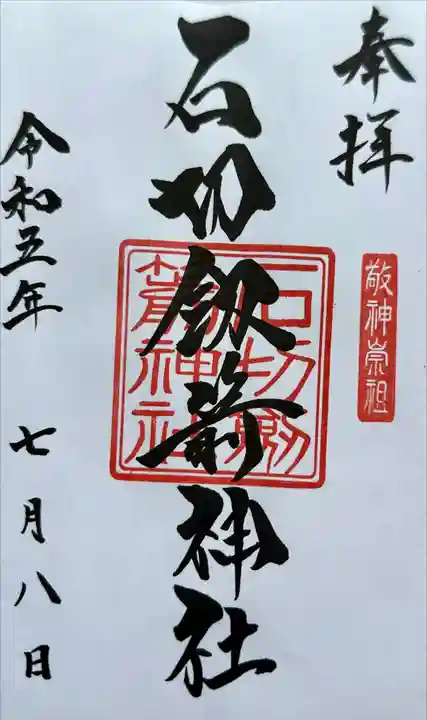 奉拝
敬神崇祖
石切劔箭神社
石切劔箭神社
令和五年七月八日